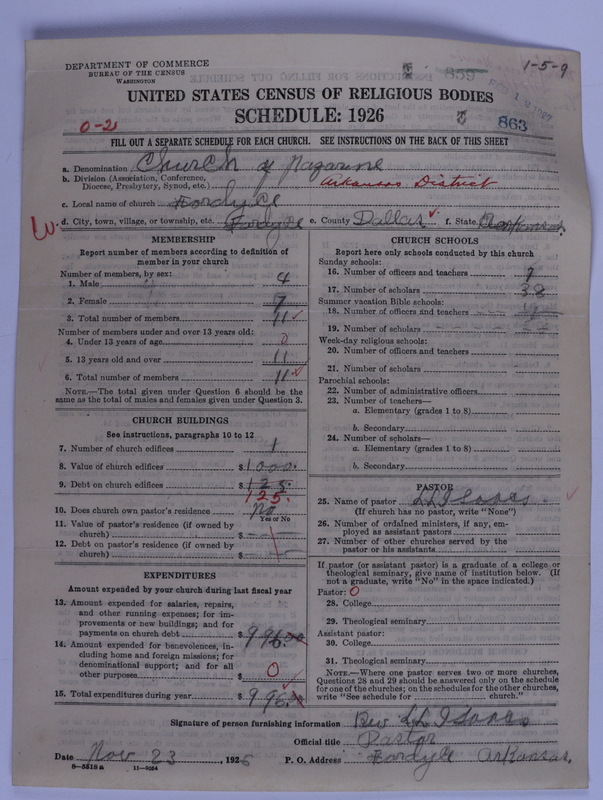 DEPARTMENT OF COMMERCE
BUREAU OF THE CENSUS
WASHINGTON
859
1-5-9
UNITED STATES CENSUS OF RELIGIOUS BODIES
SCHEDULE: 1926
0-2
863
FILL OUT A SEPARATE SCHEDULE FOR EACH CHURCH. SEE INSTRUCTIONS ON THE BACK OF THIS SHEET
a. Denomination Church of Nazarine
b. Division (Association, Conference,
Diocese, Presbytery, Synod, etc.) Arkansas District
c. Local name of church Fordyce
d. City, town, village, or township, etc. Fordyce e. County Dallas f. State Arkansas.
MEMBERSHIP
Report number of members according to definition of
member in your church
Number of members, by sex:
1. Male 4
2. Female 7
3. Total number of members 11
Number of members under and over 13 years old:
4. Under 13 years of age 0
5. 13 years old and over 11
6. Total number of members 11
NOTE.—The total given under Question 6 should be
the same as the total of males and females given under Question 3.
CHURCH BUILDINGS
See instructions, paragraphs 10 to 12
7. Number of church edifices 1
8. Value of church edifices $1000.
9. Debt on church edifices $125.
125.
10. Does church own pastor's residence No
Yes or No
11. Value of pastor's residence (if owned by
church) $
12. Debt on pastor's residence (if owned by
church) $
EXPENDITURES
Amount expended by your church during last fiscal year
13. Amount expended for salaries, repairs,
and other running expenses; for im-
provements or new buildings; and for
payments on church debt $996.
14. Amount expended for benevolences, in-
cluding home and foreign missions; for
denominational support; and for all
other purposes $0
15. Total expenditures during year $996.
CHURCH SCHOOLS
Report here only schools conducted by this church
Sunday schools:
16. Number of officers and teachers 7
17. Number of scholars 38
Summer vacation Bible schools:
18. Number of officers and teachers
19. Number of scholars
Week-day religious schools:
20. Number of officers and teachers
21. Number of scholars
Parochial schools:
22. Number of administrative officers
23. Number of teachers—
a. Elementary (grades 1 to 8)
b. Secondary
24. Number of scholars—
a. Elementary (grades 1 to 8)
b. Secondary
PASTOR
25. Name of pastor LL Isaacs.
(If church has no pastor, write "None")
26. Number of ordained ministers, if any, em-
ployed as assistant pastors
27. Number of other churches served by the
pastor or his assistants
If pastor (or assistant pastor) is a graduate of a college or
theological seminary, give name of institution below. (If
not a graduate, write "No" in the space indicated.)
Pastor: 0
28. College
29. Theological seminary
Assistant pastor:
30. College
31. Theological seminary
NOTE.—Where one pastor serves two or more churches,
Questions 28 and 29 should be answered only on the schedule
for one of the churches; on the schedules for the other churches,
write "See schedule for church."
Signature of person furnishing information Rev LL Isaacs
Official title Pastor
Date Nov 23, 1926 P. O. Address Fordyce Arkansas.
8-5518a 11-9054